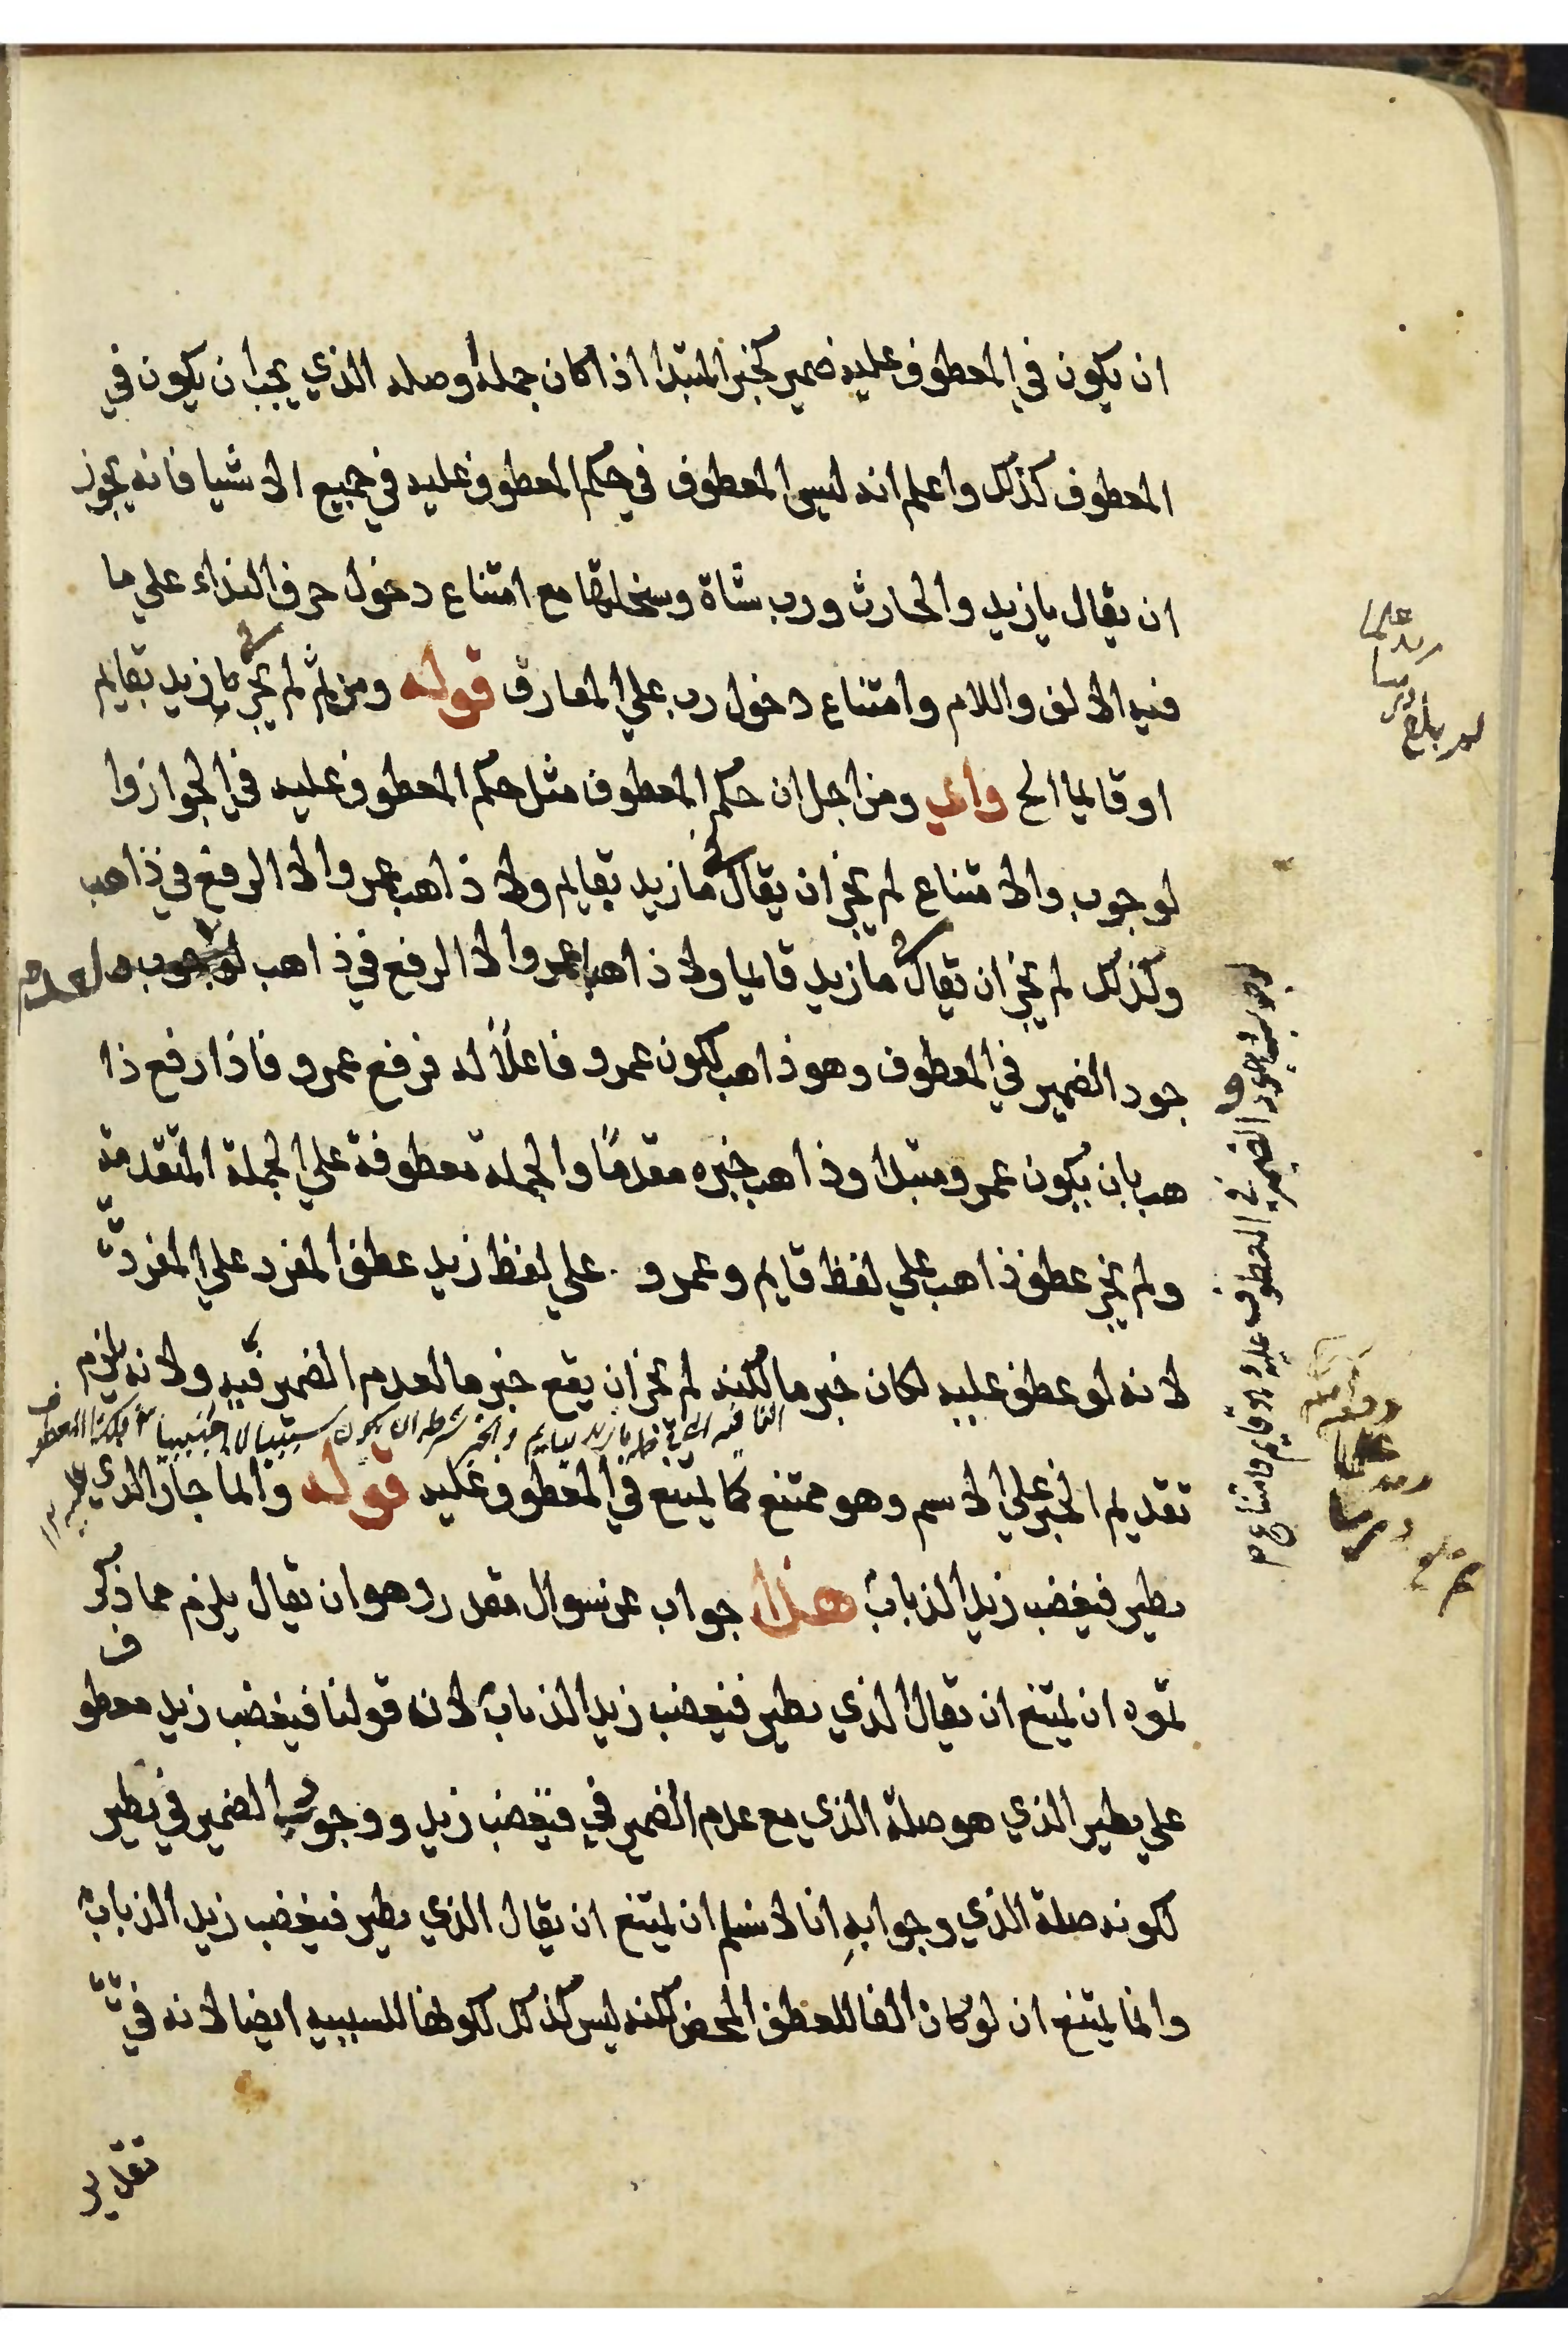 ان يكون في المعطوف عليه ضمير كخبر المبتدا اذا كان جملة وصله الذي يجب ان يكون في
المعطوف كذلك واعلم انه ليس المعطوف في حكم المعطوف عليه في جميع الاشيا فانه يجوز
ان يقال يا زيد والحارث ورب شاة وسخلتها مع امتناع دخول حرف النداء علي ما
فيه الالف واللام وامتناع دخول رب علي المعارف قوله ومن ثم لم يجز في ما زيد بقايم
او قايما الخ واي ومن اجل ان حكم المعطوف مثل حكم المعطوف عليه في الجواز وا
لوجوب والامتناع لم يجز ان يقال في ما زيد بقايم ولا ذاهب عمرو الا الرفع في ذاهب
وكذلك لم يجز ان يقال في ما زيد قايما ولا ذاهبا عمرو الا الرفع في ذاهب لوجوب والعدم
جود الضمير في المعطوف وهو ذاهب لكون عمرو فاعلاً له فرفع عمرو فاذا رفع ذا
هب بان يكون عمرو مبتدا وذاهب خبره مقدماً والجملة معطوفة علي الجملة المتقدمة
ولم يجز عطف ذاهب علي لفظ قايم وعمرو علي لفظ زيد عطف المفرد علي المفرد
لانه لو عطف عليه لكان خبر ما لكنه لم يجز ان يقع خبر ما لعدم الضمير فيه ولانه يلزم
تقديم الخبر علي الاسم وهو ممتنع كما يمتنع في المعطوف عليه قوله وانما جاز الذي
يطير فيغضب زيد الذباب هذا جواب عن سوال مقدر وهو ان يقال يلزم مما ذكر
تموه ان يمتنع ان يقال الذي يطير فيغضب زيد الذباب لانه قولنا فيغضب زيد معطو
ف
علي يطير الذي هو صلة الذي مع عدم الضمير في فيغضب زيد ووجوب الضمير في يطير
لكونه صلة الذي وجوابه انا لا نسلم ان يمتنع ان يقال الذي يطير فيغضب زيد الذباب
وانما يمتنع ان لو كان الفا للعطف المحض لكنه ليس كذلك لكونها للسببيه ايضا لانه في
تقدير
لوجوب وجود الضمير في المعطوف عليه وهو قايم وامتناع